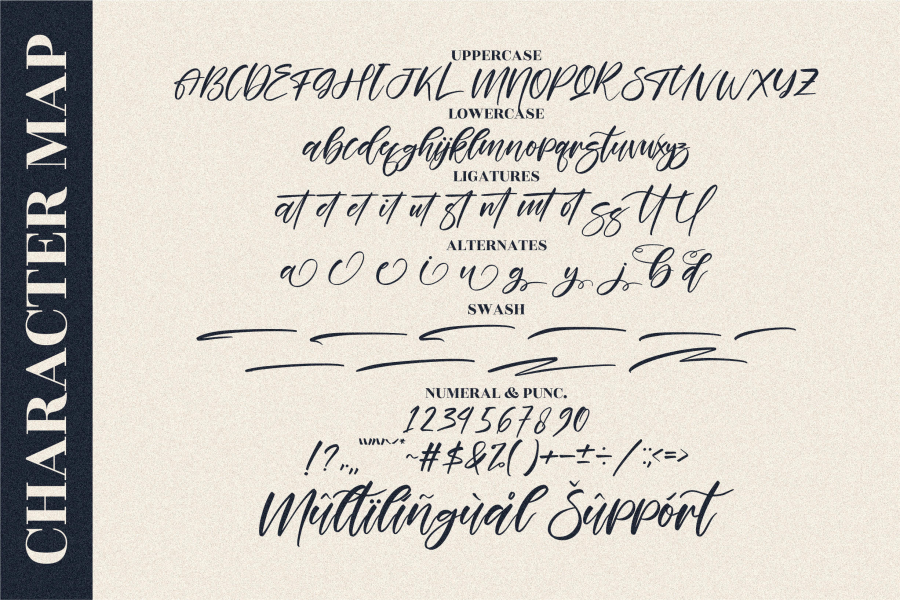 CHARACTER MAP
UPPERCASE
ABCDEFGHIJKLMNOPQRSTUVWXYZ
LOWERCASE
abcdefghijklmnopqrstuvwxyz
LIGATURES
at ct et it ut st nt mt ot ss tt ll
ALTERNATES
a c e i u g y j b d
SWASH
NUMERAL & PUNC.
1234567890
~#$&%()+-±÷/:;<=>
Mûltïlíñgùål Šûppórt